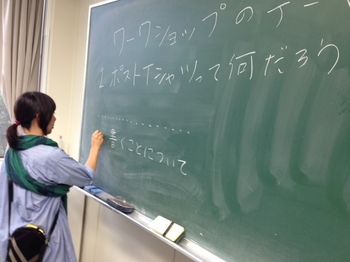 ワークショップの
1 ポストTシャツって何だろう
..................
書くことについて